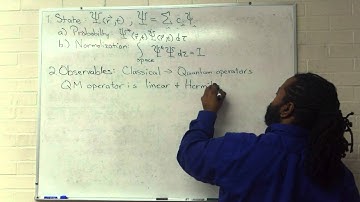 1. State: Ψ(r,t), Ψ = Σ cₙΨₙ
a) Probability Ψ*(r,t)Ψ(r,t)dτ
b) Normalization ∫ Ψ*Ψ dτ = 1
space
2. Observables: Classical → Quantum operators
QM operator is linear + Hermit